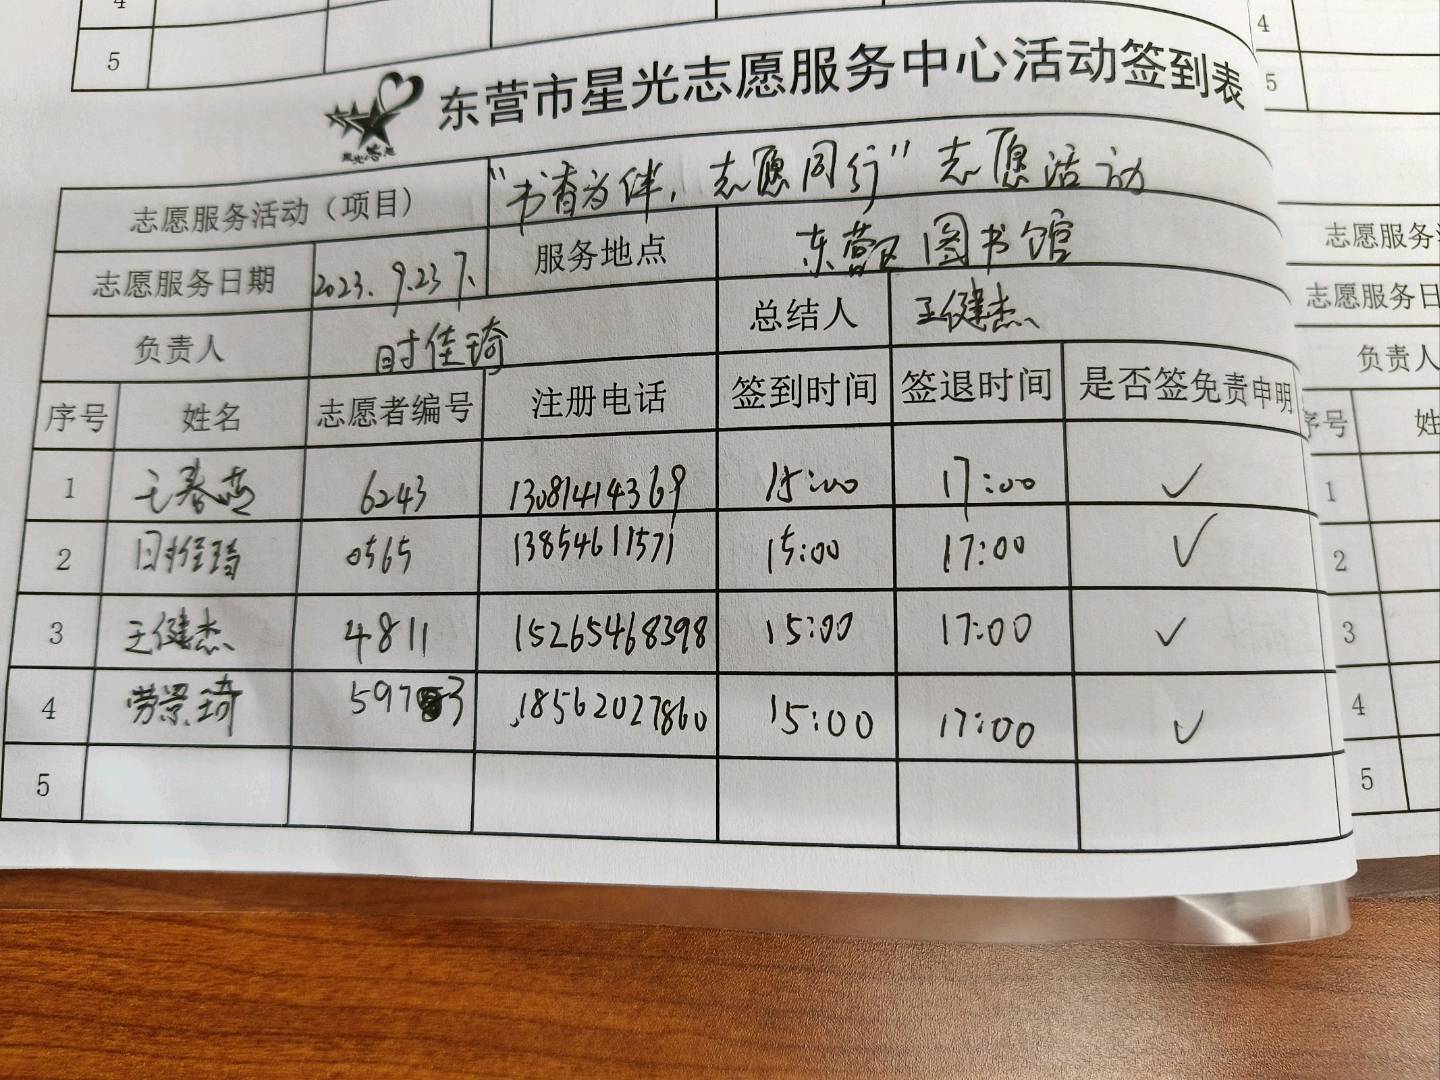 4
5
4
5
东营市星光志愿服务中心活动签到表
志愿服务活动（项目） “书香为伴，志愿同行”志愿活动
志愿服务日期 2023.9.23 下 服务地点 东营区图书馆
负责人 时佳琦 总结人 王健杰
序号 姓名 志愿者编号 注册电话 签到时间 签退时间 是否签免责申明
1 王春燕 6243 13081414369 15:00 17:00 ✓
2 时佳琦 0565 13854611571 15:00 17:00 ✓
3 王健杰 4811 15265468398 15:00 17:00 ✓
4 劳景琦 597 3 18562027860 15:00 17:00 ✓
5
志愿服务
志愿服务日
负责人
序号 姓
1
2
3
4
5